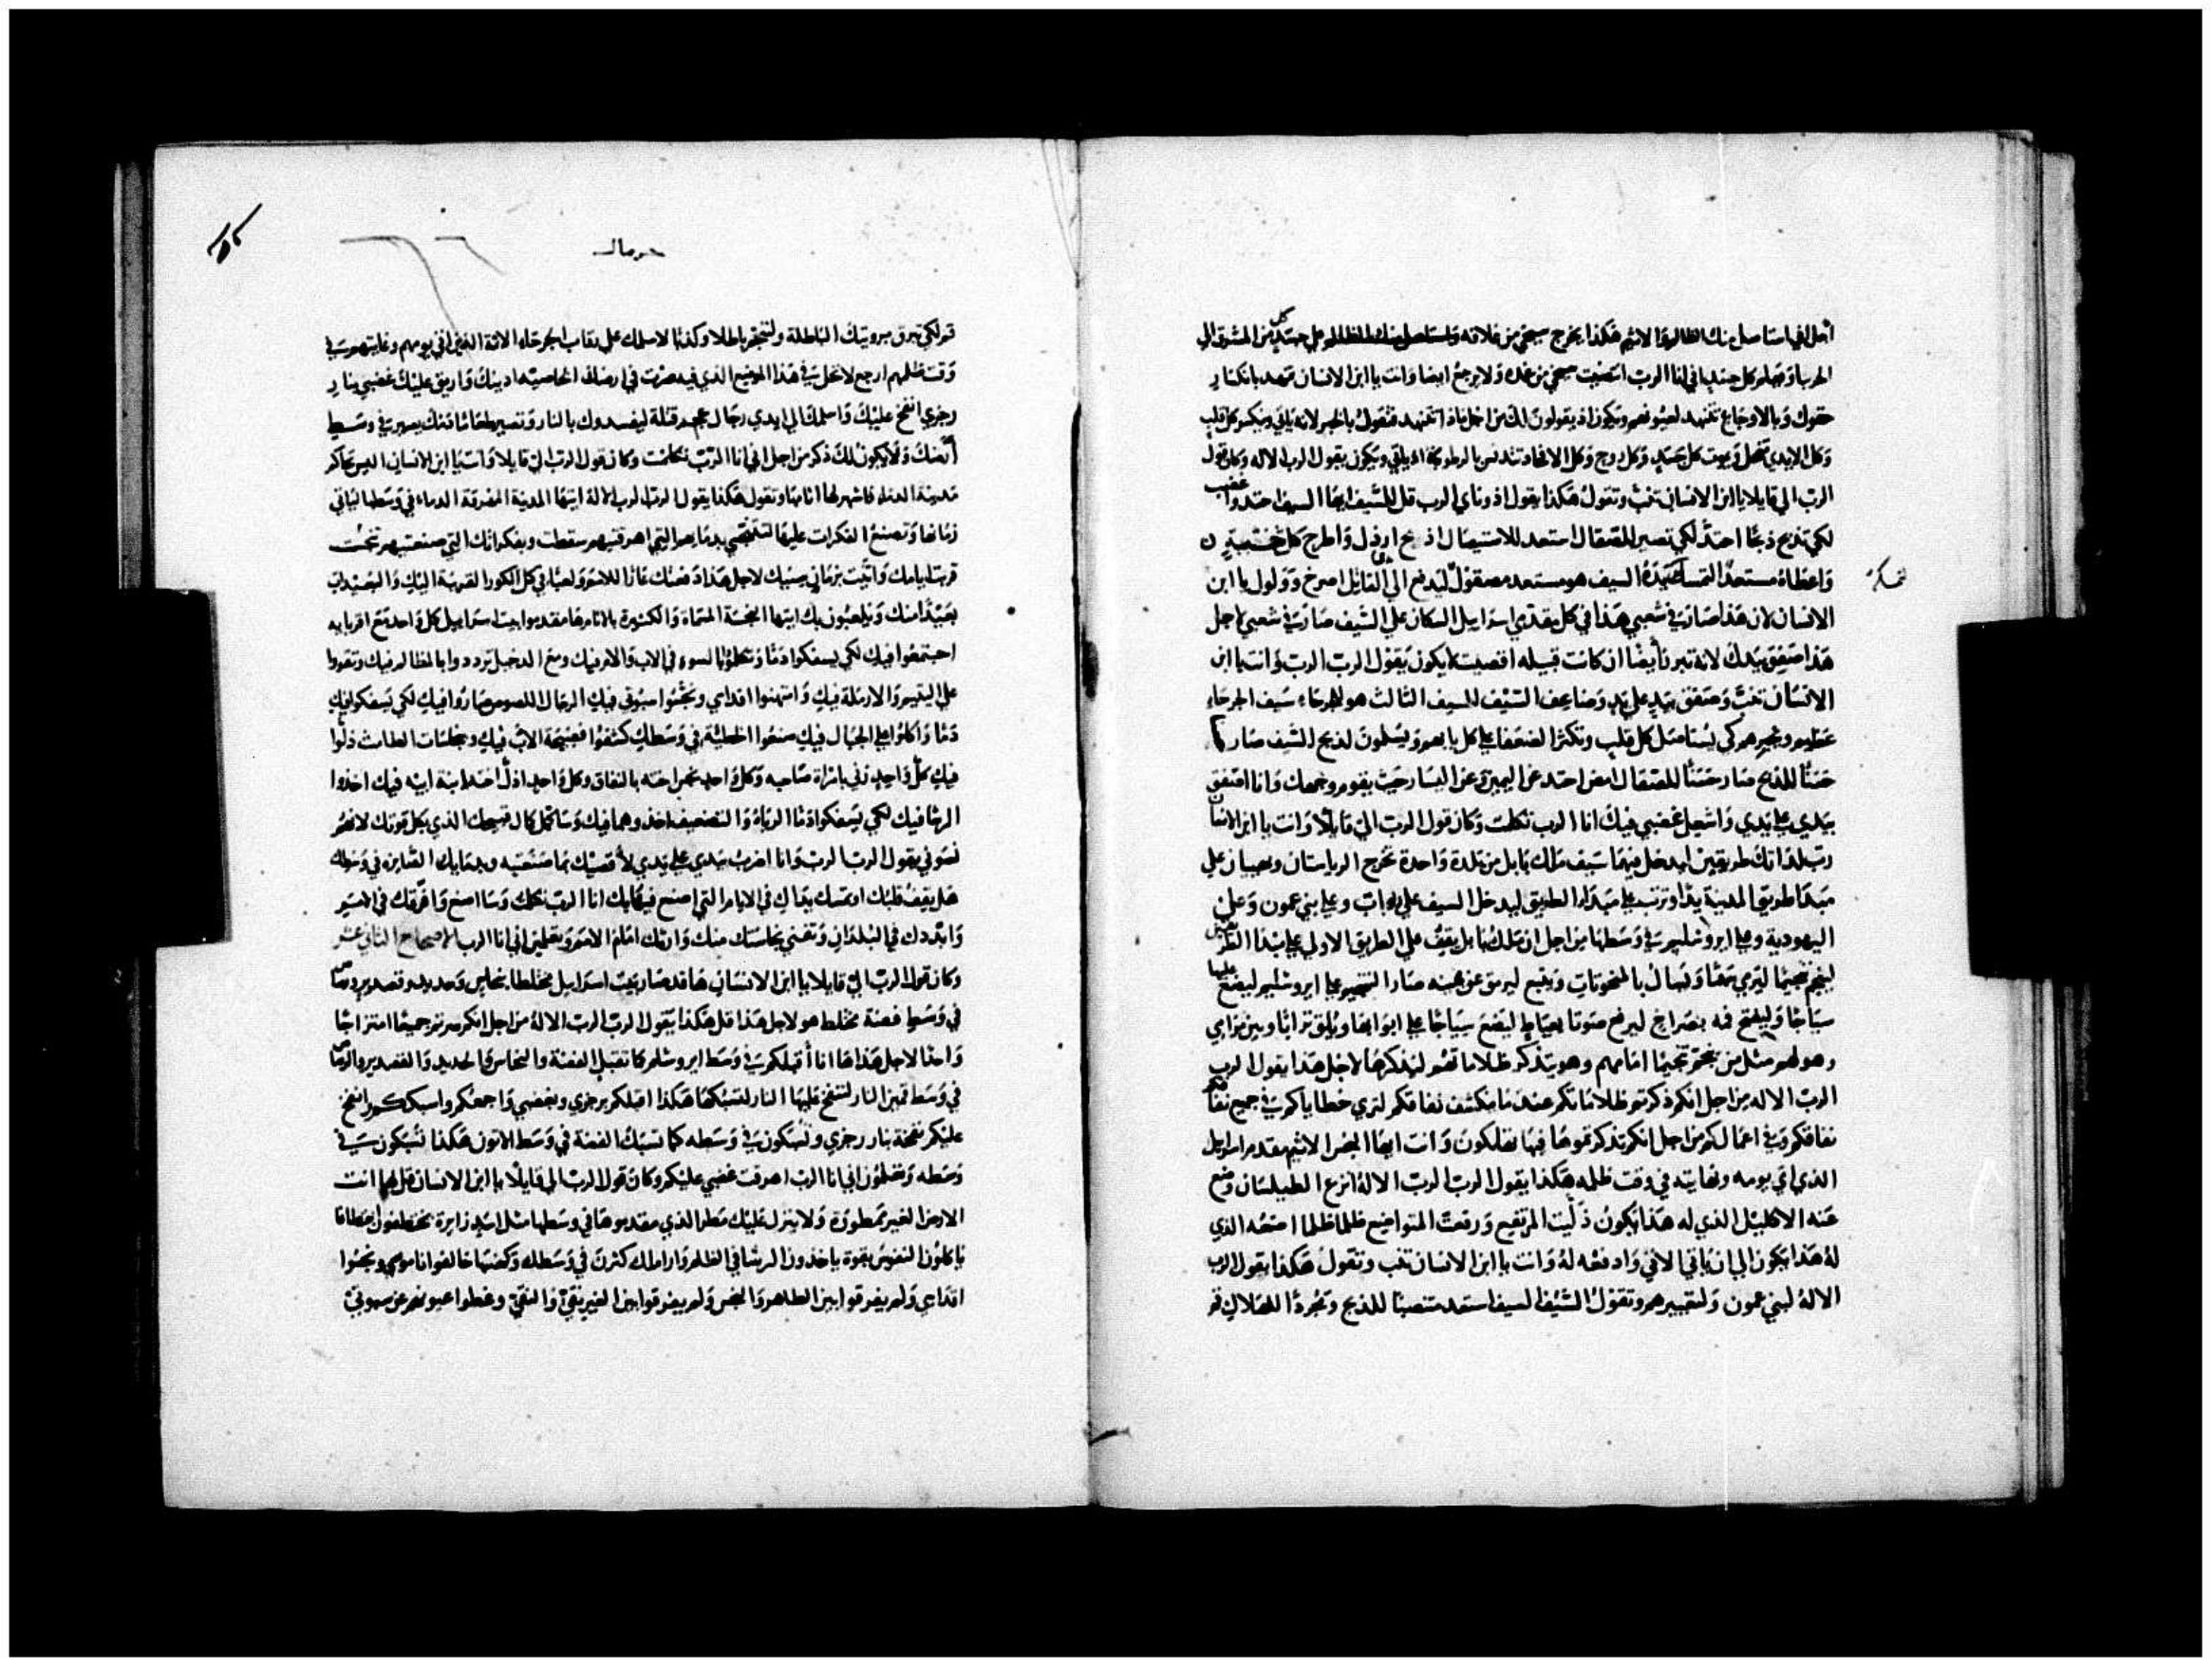 اجل اني استاصل منك الظالم والاثيم هكذا يخرج سيفي من غلافه على كل جسد من المشرق الى
الجربيا ويعلم كل جسد اني انا الرب استضيت سيفي من غمده ولا يرجع ايضا وانت يا ابن الانسان تنهد بانكسار
حقوك وبالاوجاع تتنهد لعيونهم ويكون اذ يقولون لك من اجل ماذا تتنهد فتقول بالخبر لانه ياتي وينكسر كل قلب
وكل الايدي تنحل ويموت كل جسد وكل روح وكل الافخاذ تتدنس بالرطوبة ها ياتي ويكون يقول الرب الاله وكان قول
الرب الي قايلا يا ابن الانسان تنب وتقول هكذا يقول ادوناي الرب قل للسيف ايها السيف احتد واغضب
لكي تذبح ذبحا احتد لكي تصير للصقال استعد للاستيصال اذبح ارذل واطرح كل خشبة
واعطاه مستعدا لتمسكه يده السيف هو مستعد مصقول ليدفع الى يدي القاتل اصرخ وولول يا ابن
الانسان لان هذا صار في شعبي هذا في كل مقدمي اسراييل السكان على السيف صار في شعبي لاجل
هذا صفق بيدك لانه تبرر وايضا ان كانت قبيله اقصيت لا يكون يقول الرب الرب وانت يا ابن
الانسان تنب وصفق بيد على يد وضاعف السيف السيف الثالث هو للجرحاء سيف الجرحاء
عظيم وتحيرهم كي يستاصل كل قلب وتكثر الضعفا على كل بابهم ويسلمون لذبح السيف صار
حسنا للذبح صار حسنا للصقال امض احتد عن اليمين وعن اليسار حيث يقوم وجهك وانا اصفق
بيدي على يدي واشعل غضبي فيك انا الرب تكلمت وكان قول الرب الي قايلا وانت يا ابن الانسان
رتب لذاتك طريقين ليدخل فيهما سيف ملك بابل من بلدة واحدة تخرج الرياستان
مبدا طريق المدينة يدا وترتب على مبداء الطريق ليدخل السيف على رباث وعلى بني عمون وعلى
اليهودية وعلى ايروشليم في وسطها من اجل ان ملك بابل يقف على الطريق الاولى على مبدا الطريقين
لينجم تنجيما ليرى عصا ويسال بالمنحوتات عن يمينه صار التنجيم على ايروشليم ليضع عليها
سياجا وليفتح فمه بصراخ ليرفع صوتا بعياط ليضع سياجا على ابوابها ويلق ترابا ويبن مرامي
وهو لهم مثل من ينجم تنجيما امامهم وهو يتذكر ظلاماتهم ليذكرها لاجل هذا يقول الرب
الرب الاله من اجل انكم ذكرتم ظلاماتكم عندما تكشف نفاقكم لترى خطاياكم في جميع
نفاقكم وفي اعمالكم من اجل انكم تذكرتموها فبها تهلكون وانت ايها النجس الاثيم مقدم اسراييل
الذي اتى يومه ونهايته في وقت ظلمه هكذا يقول الرب الرب الاله انزع الطيلسان وضع
عنه الاكليل الذي له هذا يكون ذليت المرتفع ورفعت المتواضع ظلما ظلما اصنعه الذي
له هذا يكون الى ان ياتي لاني وادفعه له وانت يا ابن الانسان تنب وتقول هكذا يقول الرب
الاله لبني عمون ولتعييرهم وتقول السيف السيف استعد منتصبا للذبح وتجرد للهلاك قم
تمسكه
حرمال
قم لكي تبرق برويتك الباطلة ولتنجم باطلا وكذبا لاسلمك على رقاب الجرحاء الاثمة الذين اتى يومهم وغايتهم في
وقت ظلمهم ارجع لا تحل في هذا الموضع الذي فيه صرت في ارضك الخاصية ادينك واريق عليك غضبي بنار
رجزي انفخ عليك واسلمك الى ايدي رجال عجم قتلة ليفسدوك بالنار وتصير طعاما دمك يصير في وسط
ارضك ولا يكون لك ذكر من اجل اني انا الرب تكلمت وكان قول الرب الي قايلا وانت يا ابن الانسان اليس تحاكم
مدينة الدماء فاشهر لها اثامها وتقول هكذا يقول الرب الرب الاله ايتها المدينة المهرقة الدماء في وسطها لياتي
زمانها وتصنع الفكرات عليها لتتنجس بدمايهم التي اهرقتيهم سقطت وبفكراتك التي صنعتيهم تنجست
قربت ايامك واتيت بزمان سنيك لاجل هذا دفعتك عارا للامم ولعبا في كل الكور القريبة اليك والبعيدات
بعيدا منك ويلعبون بك ايتها النجسة المسماة والكثيرة بالاثام ها مقدموا بيت اسراييل كل واحد مع اقربايه
اجتمعوا فيك لكي يسفكوا دما وتكلموا بالسوء في الاب والام فيك ومع الدخيل ترددوا بالمظالم فيك وتقووا
على اليتيم والارملة فيك وامتهنوا اقداسي ونجسوا سبوتي فيك الرجال اللصوص صاروا فيك لكي يسفكوا فيك
دما واكلوا على الجبال فيك صنعوا الخطية في وسطك كشفوا فضيحة الاب فيك وبنجاسات الطامث ذلوا
فيك كل واحد زنى بامراة صاحبه وكل واحد نجس اخته بالنفاق وكل واحد اذل اخته ابنة ابيه فيك اخذوا
الرشا فيك لكي يسفكوا دما الرباء والتضعيف اخذوهما فيك وساكمل كمال قبيحك الذي بكل قوتك لانكم
نسوني يقول الرب الرب وانا اضرب بيدي على يدي لاقصيتك بما صنعتيه وبدمايك الصايرة في وسطك
هل يقف قلبك او تمسك يداك في الايام التي اصنع فيها بك انا الرب تكلمت وساصنع وافرقك في الامم
وابددك في البلدان وتفنى نجاستك منك وارثك امام الامم وتعلمين اني انا الرب الاصحاح الثاني عشر
وكان قول الرب الي قايلا يا ابن الانسان ها قد صار بيت اسراييل مختلطا بنحاس وحديد وقصدير ورصاص
في وسط فضة مختلط هو لاجل هذا قل هكذا يقول الرب الرب الاله من اجل انكم صرتم جميعا امتزاجا
واحدا لاجل هذا ها انا اقبلكم في وسط ايروشلم كما تقبل الفضة والنحاس والحديد والقصدير والرصاص
في وسط قمين النار لتنفخ عليها النار لتسبكها هكذا اقبلكم برجزي وبغضبي واجمعكم واسبككم وانفخ
عليكم نفخة بنار رجزي وتسبكون في وسطه كما تسبك الفضة في وسط الاتون هكذا تسبكون في
وسطه وتعلمون اني انا الرب اهرقت غضبي عليكم وكان قول الرب الي قايلا يا ابن الانسان قل لها انت
الارض الغير ممطورة ولا ينزل عليك مطر الذي مقدموها في وسطها مثل اسد زايرة تخطف خطافا
ياكلون النفوس بقوة ياخذون الرشا في الظلم واراملك كثرن في وسطك وكهنتها خالفوا ناموسي ونجسوا
اقداسي ولم يفرقوا بين الطاهر والنجس ولم يفرقوا بين الغير نقي والنقي وغطوا عيونهم عن سبوتي